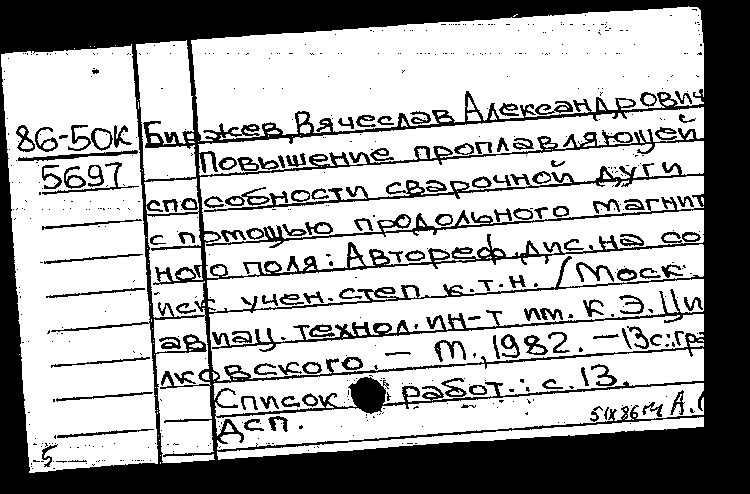 86-50К
5697
Биржев, Вячеслав Александрович
Повышение проплавляющей
способности сварочной дуги
с помощью продольного магнит
ного поля: Автореф. дис. на со
иск. учен. степ. к.т.н. / Моск.
авиац. технол. ин-т им. К.Э. Ци
лковского. — М., 1982. — 13с.: гра
Список работ.: с. 13.
Дсп.
5